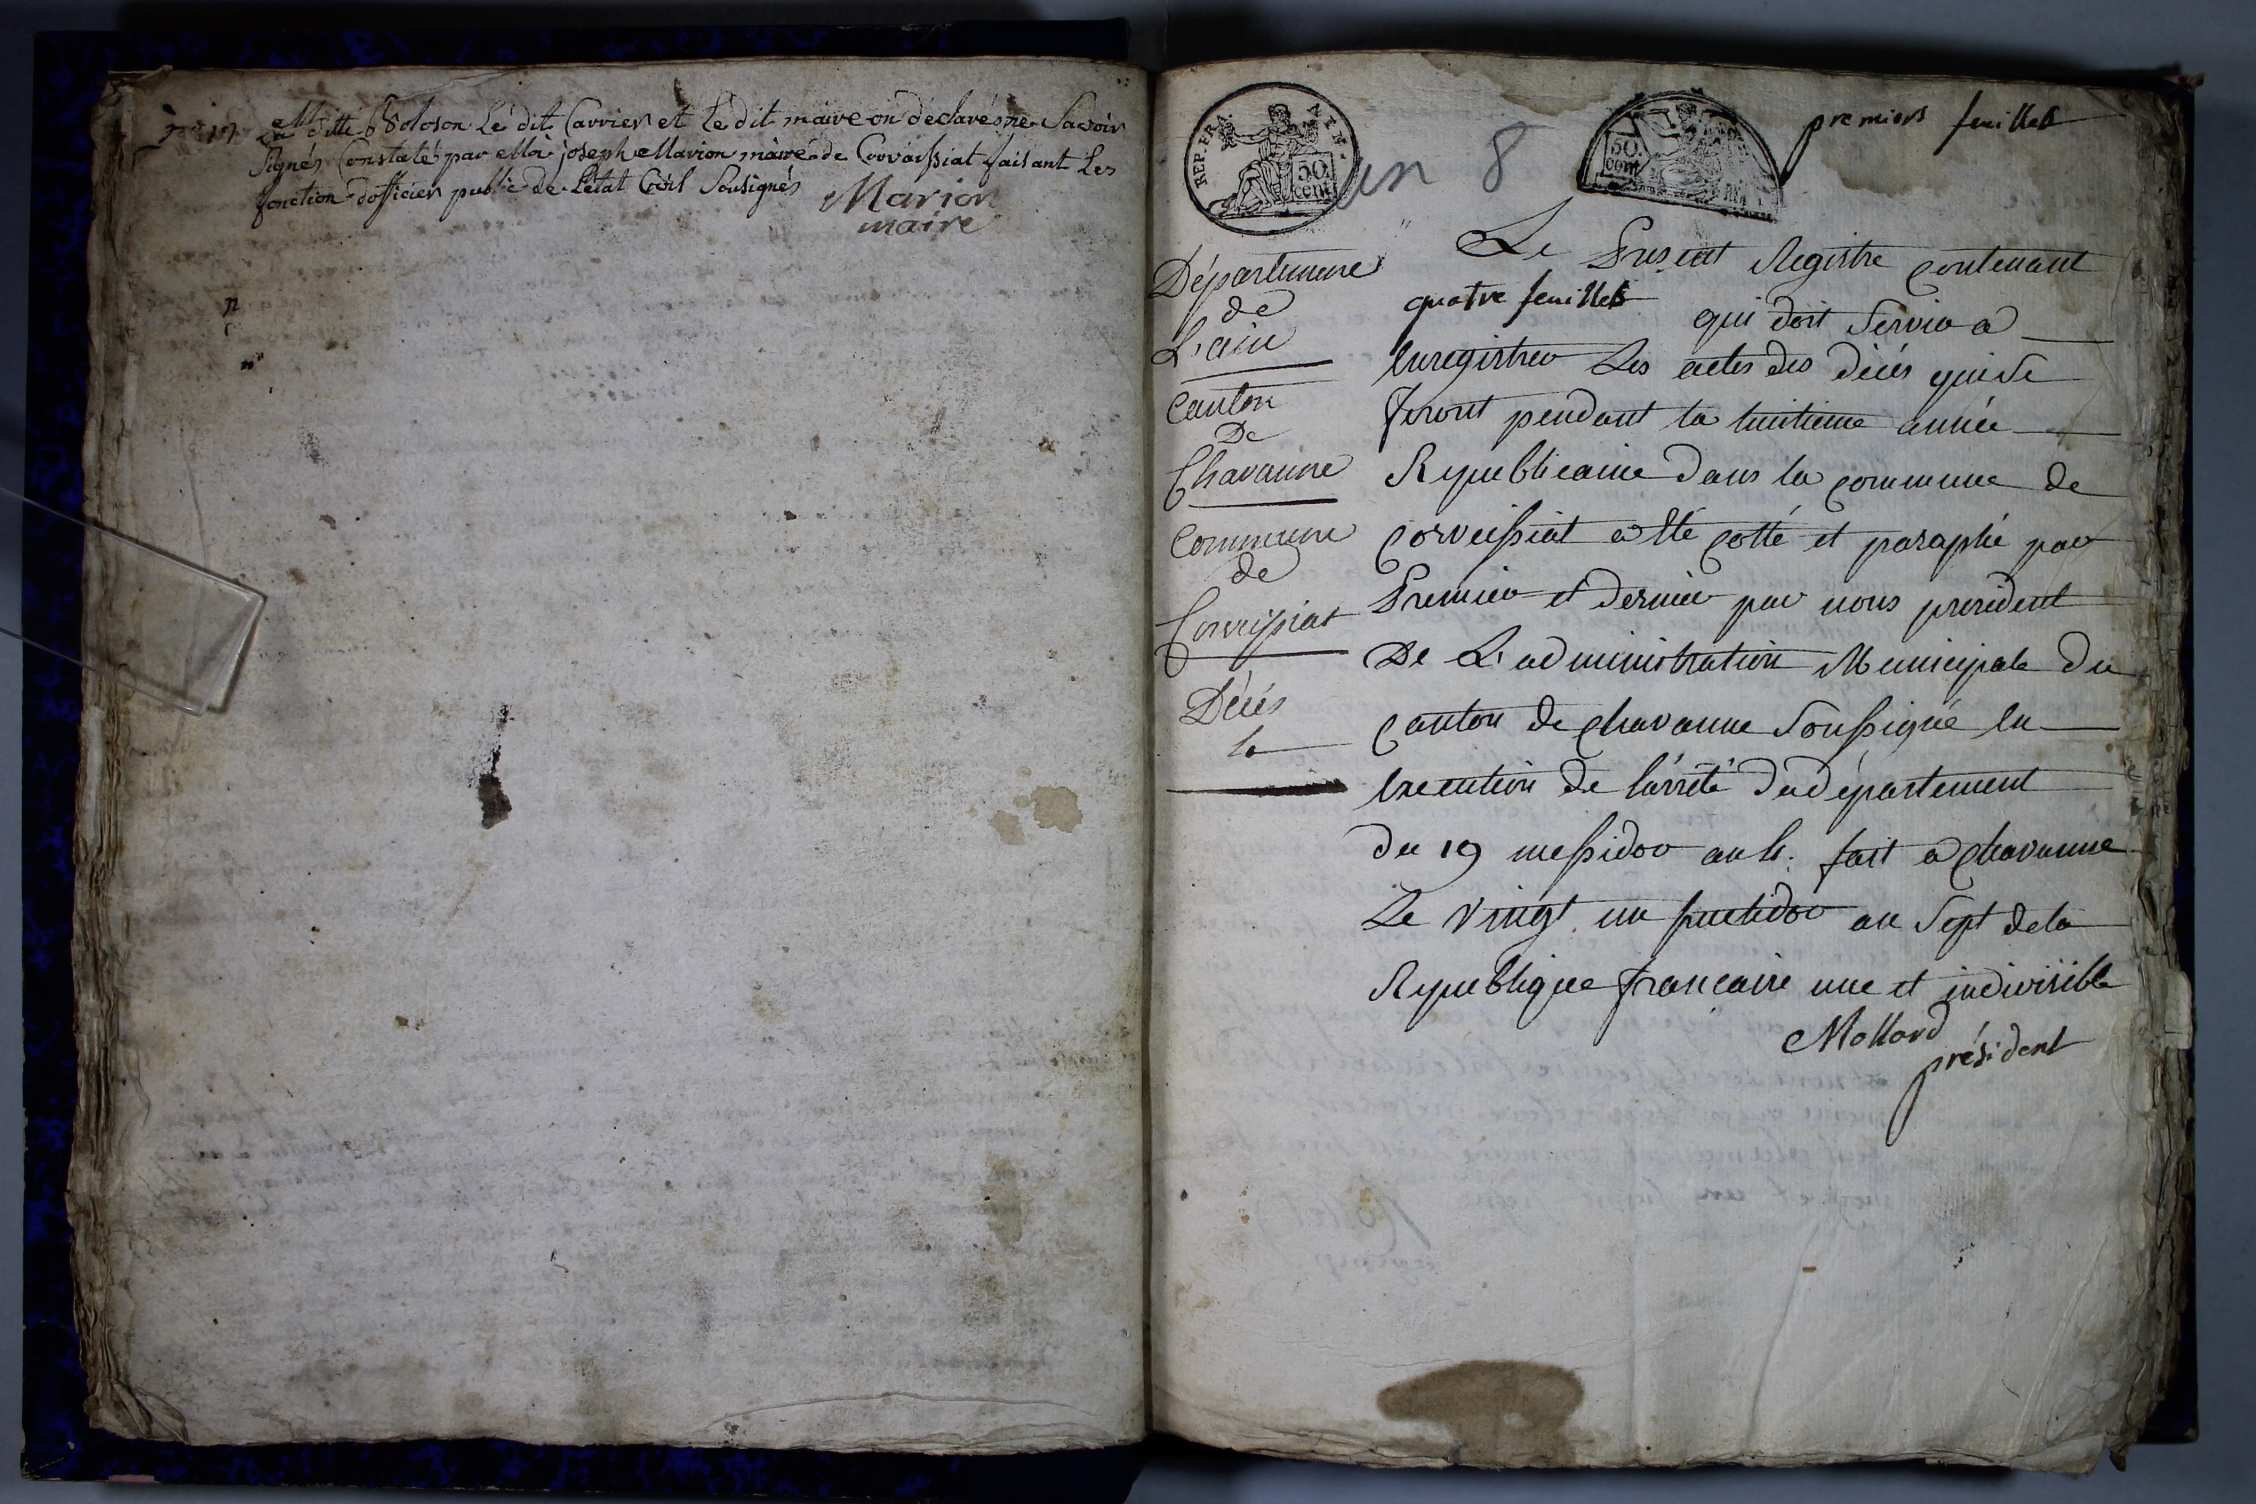 laditte Boloson Le dit Carrier et le dit maire on déclarés ne Savoir
Signés Constaté par Moi joseph Marion maire de Corvaissiat faisant Les
fonction dofficier public de Létat Civil Sousignés
Marion
maire
REP. FRA.
50
cent
an 8
50
cent
premiers feuillets
Département
de
L'ain
Canton
De
Chavanne
Commune
de
Corveissiat
Décés
Le Present Registre contenant
quatre feuillets qui doit Servir a
Enregistrer Les actes des décés qui Se
feront pendant la huitieme année
Republicaine dans la commune de
Corveissiat a été cotté et paraphé par
Premier et dernier par nous president
De L'administration Municipale du
Canton de Chavanne Soussigné En
Execution de l'arrêté du département
du 19 messidor an 4. fait a Chavanne
Le Vingt un fructidor an Sept dela
Republique francaise une et indivisible
Mollard
président